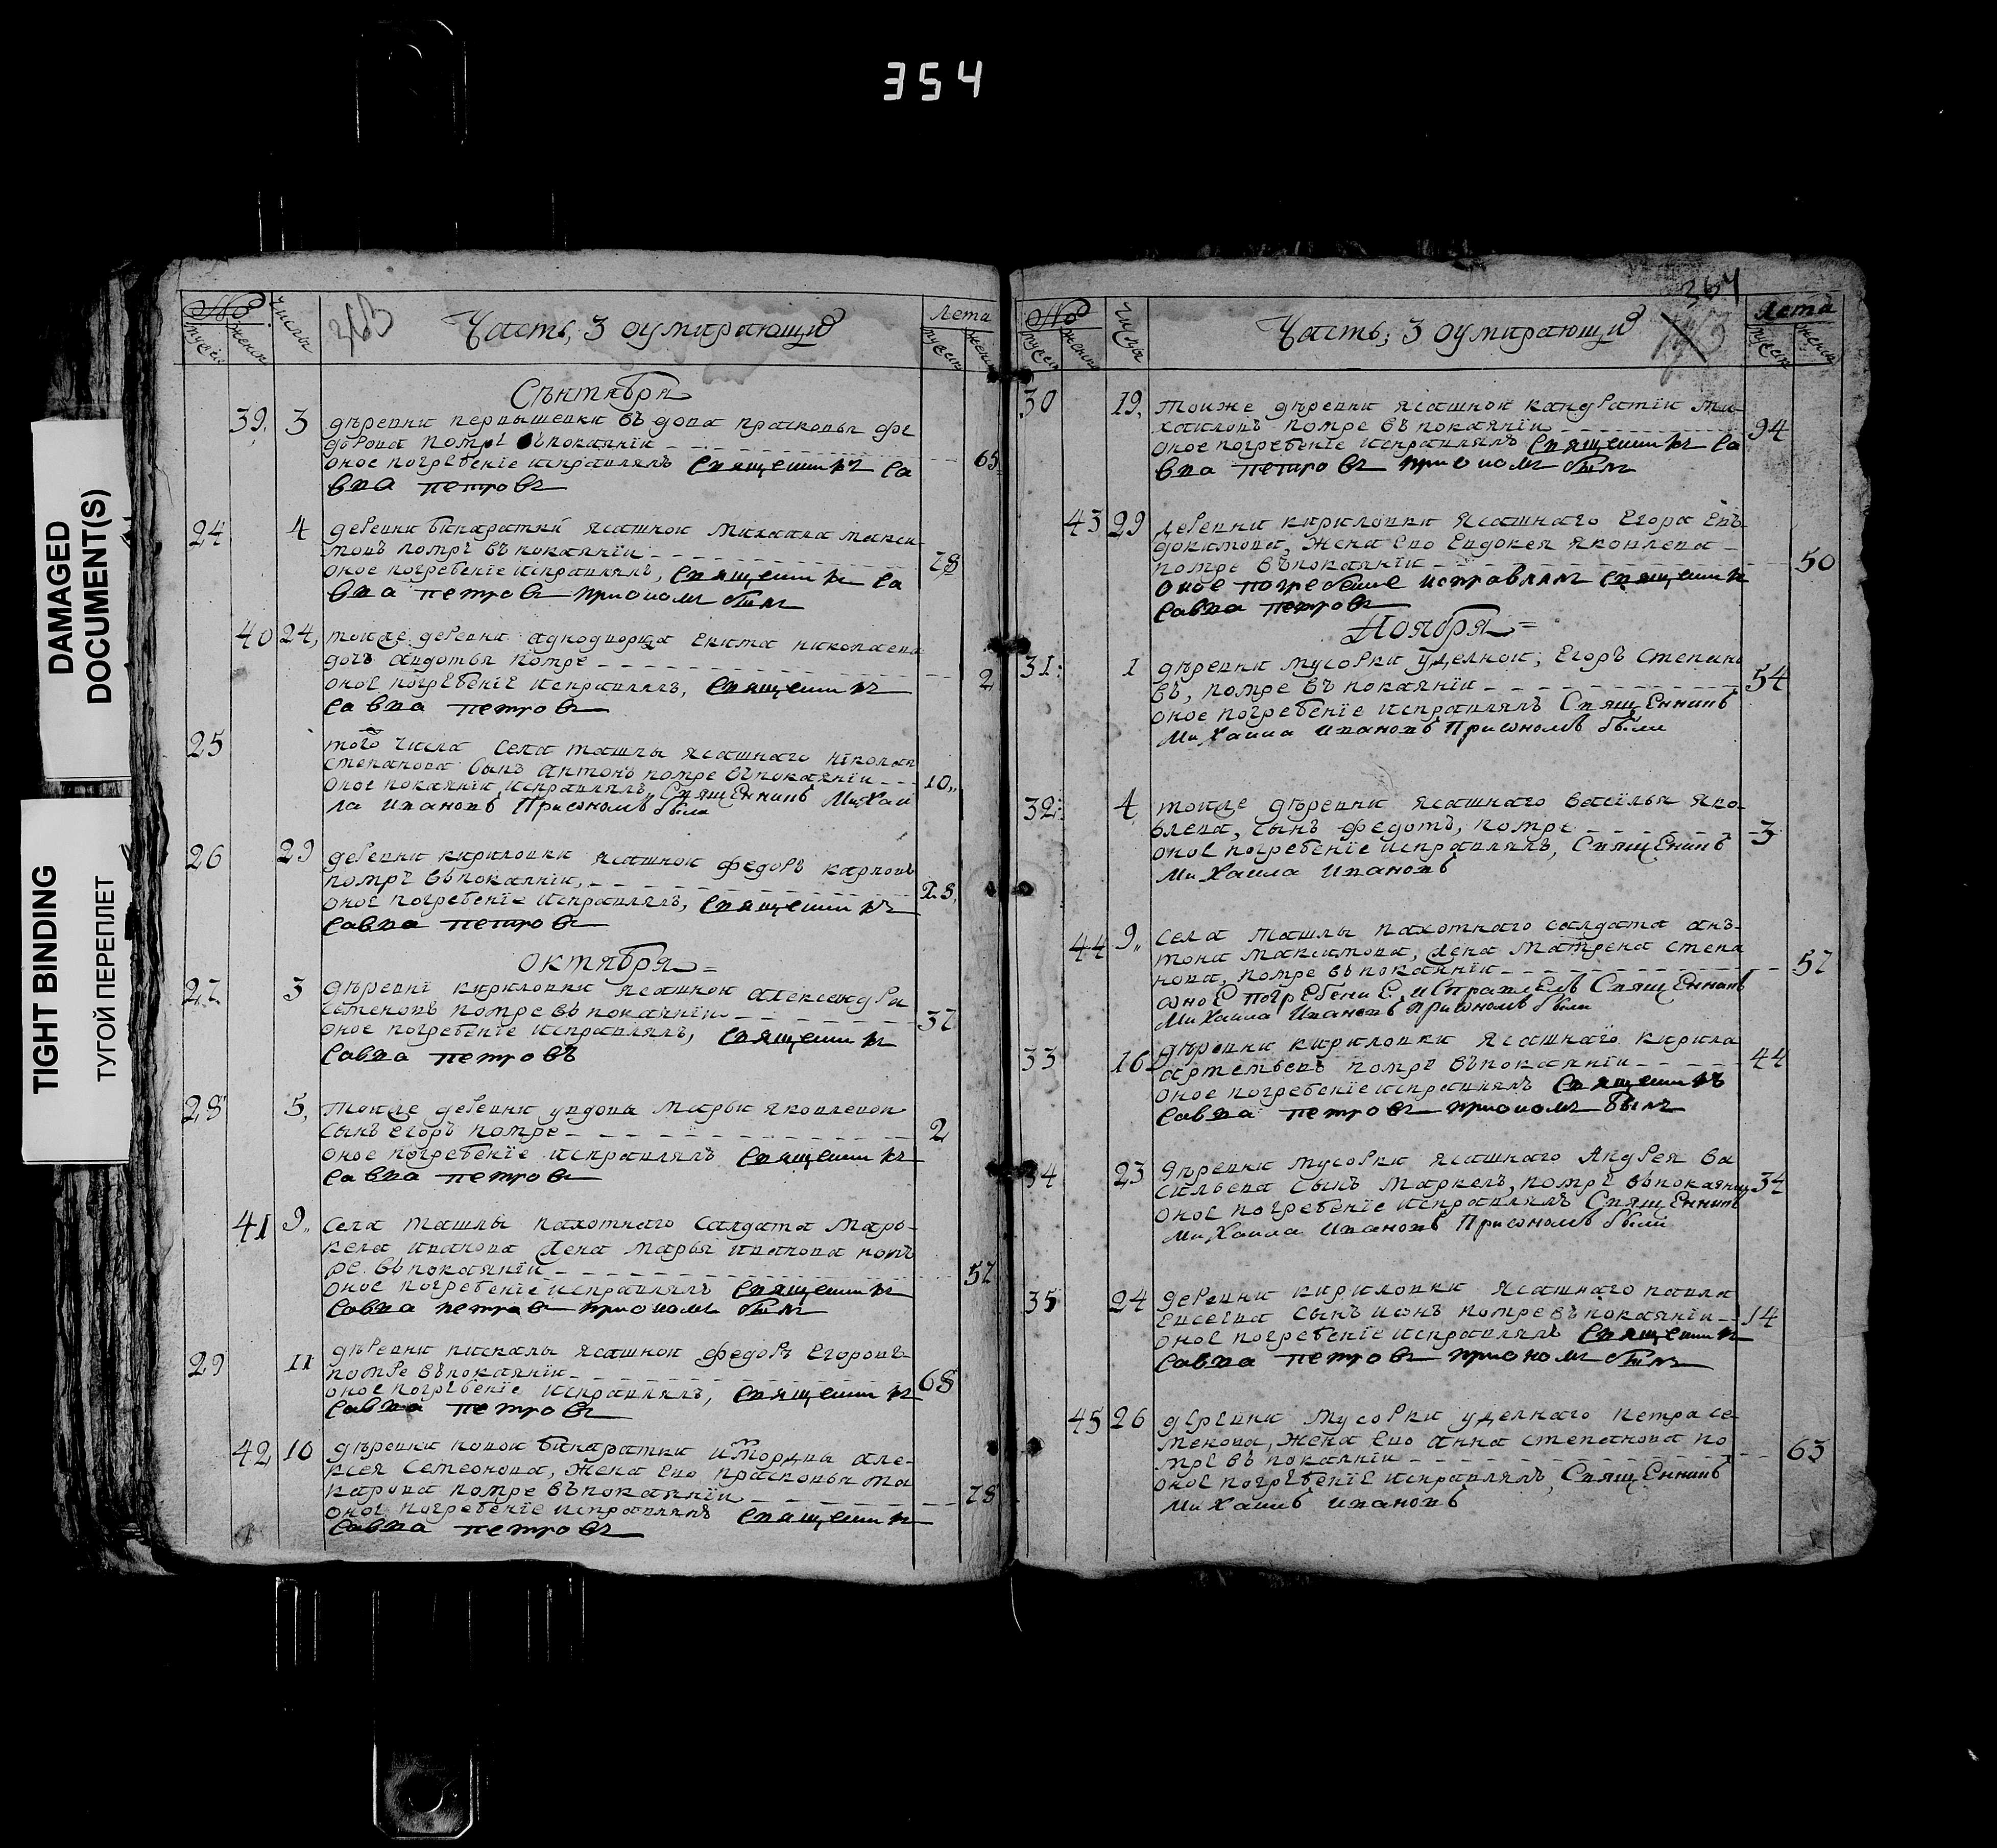 354
DAMAGED
DOCUMENT(S)
TIGHT BINDING
ТУГОЙ ПЕРЕПЛЕТ
№
мужеск
женск
числы
363
Часть, 3 оумирающий
Лета
мужеск
женск
Сентября
39. 3 деревни первышевки вдова прасковья фе
дерова помре впокаянии
оное погребение исправлялъ Священникъ Са 65
вва петровъ
24 4 деревни бинаратки ясашнои михаила макси
мовъ помре въ покаянии
оное погребение исправлялъ, Священникъ Са 78
вва петровъ присномъ былъ
40 24, тоиже деревни аднодворца никита николаева
дочь авдотья помре
оное погребение исправлялъ, Священникъ 2
Савва петровъ
25 того числа села ташлы ясашнаго николаи
степанова сынъ антонъ помре въпокаянии 10,,
оное покаянии исправлялъ, Священникъ Михаи
ла Ивановъ При ономъ были
26 29 деревни кириловки ясашнои федоръ карповъ
помре въпокаянии,
оное погребение исправлялъ, Священникъ 28,
Савва петровъ
октября
27 3 деревни кириловки ясашнои александра
семеновъ помре въ покаянии
оное погребение исправлялъ, Священникъ 37
Савва петровъ
28 5, тоиже деревни удова марьи яковлевои
сынъ егоръ помре 2
оное погребение исправлялъ Священникъ
Савва петровъ
41 9,, села ташлы пахотнаго салдата мар-
кела иванова жена марья иванова пом
ре. въпокаянии 57
оное погребение исправлялъ Священникъ
Савва петровъ приономъ былъ
29 11 деревни пискалы ясашнои федоръ Егоровъ
помре въпокаянии
оное погребение исправлялъ, Священникъ 68
Савва петровъ
42 10 деревни новои бинаратки измордвы але-
ксея семеонова, жена ево прасковья ма
карова помре въпокаянии 78
оное погребение исправлялъ Священникъ
Савва петровъ
№
мужеск
женск
числы
364
Часть; 3 оумирающий
Лета
мужеск
женск
30 19. тоиже деревни ясашнои кандратии ми
хаиловъ помре въ покаянии 94
оное погребение исправлялъ Священникъ Са
вва петровъ приономъ былъ
43 29 деревни кириловки ясашнаго Егора Ев
докимова, жена ево Евдокея яковлева
помре въпокаянии 50
оное погребение исправлялъ Священникъ
Савва петровъ
Ноября
31: 1 деревни мусорки уделнои, Егоръ степано
въ, помре въ покаянии 54
оное погребение исправлялъ Священникъ
Михаила Ивановъ При ономъ были
32: 4 тоиже деревни ясашнаго василья яко-
влева, сынъ федотъ, помре 3
оное погребение исправлялъ, Священникъ
Михаила Ивановъ
44 9,, села ташлы пахотнаго салдата ан-
тона максимова, жена матрена степа
нова, помре въпокаянии 57
оное погребение, исправлялъ Священникъ
Михаила Ивановъ При ономъ были
33 16 деревни кириловки ясашнаго кирила
артемьевъ помре въпокаянии 44
оное погребение исправлялъ Священникъ
Савва петровъ приономъ былъ
34 23 деревни мусорки ясашнаго Андрея ва
сильева сынъ маркелъ, помре въпокаянии 34
оное погребение исправлялъ Священникъ
Михаила Ивановъ При ономъ были
35 24 деревни кириловки ясашнаго павла
Евсеева сынъ иванъ помре въпокаянии 14
оное погребение исправлялъ Священникъ
Савва петровъ приономъ былъ
45 26 деревни мусорки уделнаго петра се
менова, жена ево анна степанова по
мре въ покаянии 63
оное погребение исправлялъ, Священникъ
Михаилъ Ивановъ